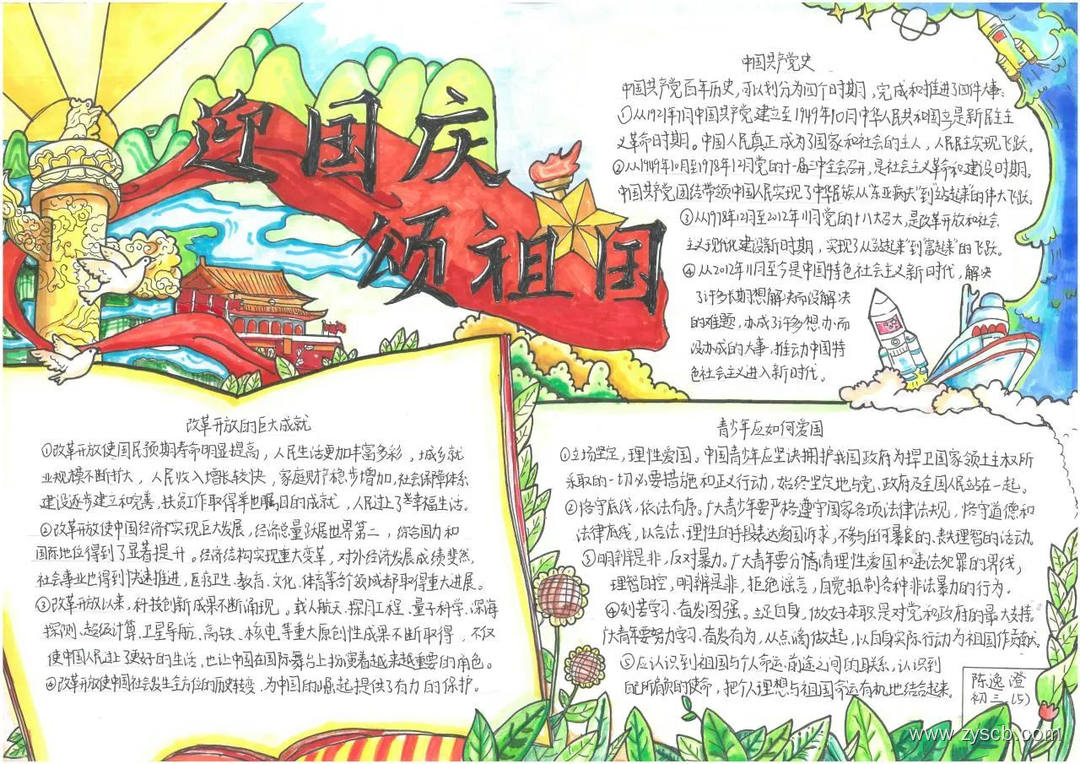 迎国庆
颂祖国
中国共产党史
中国共产党百年历史，可以划分为四个时期，完成和推进了四件大事：
①从1921年7月中国共产党建立至1949年10月中华人民共和国成立是新民主主
义革命时期。中国人民真正成为了国家和社会的主人，人民民主实现飞跃。
②从1949年10月到1978年12月党的十一届三中全会召开，是社会主义革命和建设时期。
中国共产党团结带领中国人民实现了中华民族从"东亚病夫"到"站起来"的伟大飞跃。
③从1978年12月至2012年11月党的十八大召开，是改革开放和社会
主义现代化建设新时期，实现了从"站起来"到"富起来"的飞跃。
④从2012年11月至今是中国特色社会主义新时代，解决
了许多长期想解决而没解决
的难题，办成了许多想办而
没办成的大事，推动中国特
色社会主义进入新时代。
改革开放的巨大成就
①改革开放使国民预期寿命明显提高，人民生活更加丰富多彩，城乡就
业规模不断扩大，人民收入增长较快，家庭财产稳步增加，社会保障体系
建设逐步建立和完善，扶贫工作取得举世瞩目的成就，人民过上了幸福生活。
②改革开放使中国经济实现巨大发展，经济总量跃居世界第二，综合国力和
国际地位得到了显著提升。经济结构实现重大变革，对外经济发展成绩斐然，
社会事业也得到快速推进，医疗卫生、教育、文化、体育等各个领域都取得重大进展。
③改革开放以来，科技创新成果不断涌现。载人航天、探月工程、量子科学、深海
探测、超级计算、卫星导航、高铁、核电等重大原创性成果不断取得，不仅
使中国人民过上更好的生活，也让中国在国际舞台上扮演着越来越重要的角色。
④改革开放使中国社会发生全方位的历史转变，为中国的崛起提供了有力的保护。
青少年应如何爱国
①立场坚定，理性爱国。中国青少年应坚决拥护我国政府为捍卫国家领土主权所
采取的一切必要措施和正义行动，始终坚定地与党、政府及全国人民站在一起。
②恪守底线，依法有序。广大青少年要严格遵守国家各项法律法规，恪守道德和
法律底线，以合法、理性的手段表达爱国诉求，不参与任何暴戾的、丧失理智的活动。
③明辨是非，反对暴力。广大青年要分清理性爱国和违法犯罪的界线，
理智自控，明辨是非，拒绝谣言，自觉抵制各种非法暴力的行为。
④刻苦学习，奋发图强。立足自身，做好本职是对党和政府的最大支持。
广大青年要努力学习、奋发有为，从点滴做起，以自身实际行动为祖国作贡献。
⑤应认识到祖国与个人命运、前途之间的联系，认识到
自己所肩负的使命，把个人理想与祖国命运有机地结合起来。
陈逸澄
初三(5)
www.zyscb.com